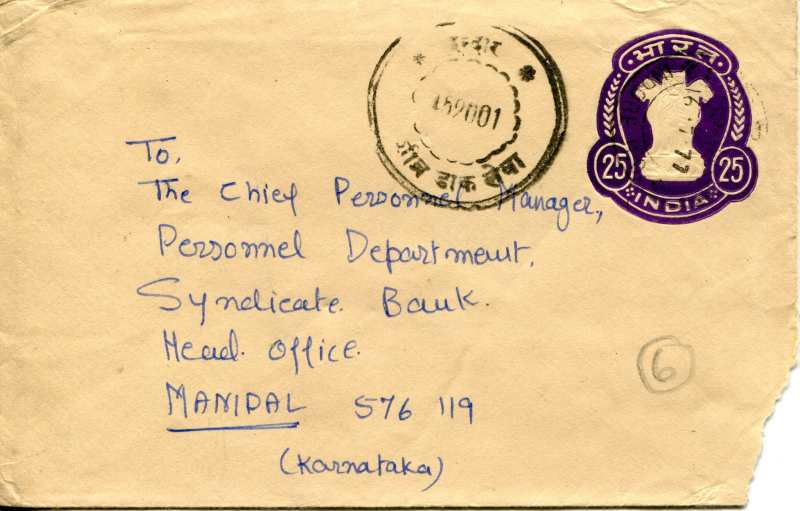 इन्दौर
452001
शीघ्र डाक सेवा
भारत
25 25
INDIA
77
To,
The Chief Personnel Manager,
Personnel Department,
Syndicate Bank.
Head Office.
MANIPAL 576 119
(Karnataka)
6